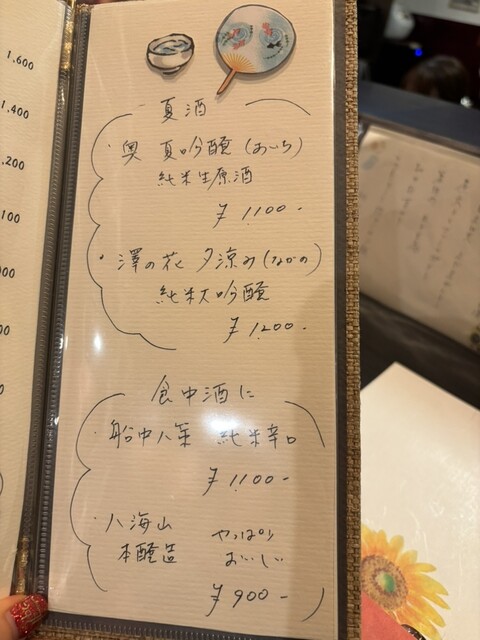 1.600
1.400
.200
100
00
0
夏酒
・奥 夏吟醸(あいち)
純米生原酒
¥1100-
・澤の花 夕涼み(ながの)
純米大吟醸
¥1.200-
食中酒に
・船中八策 純米辛口
¥1100-
・八海山 やっぱり
本醸造 おいしい
¥900-